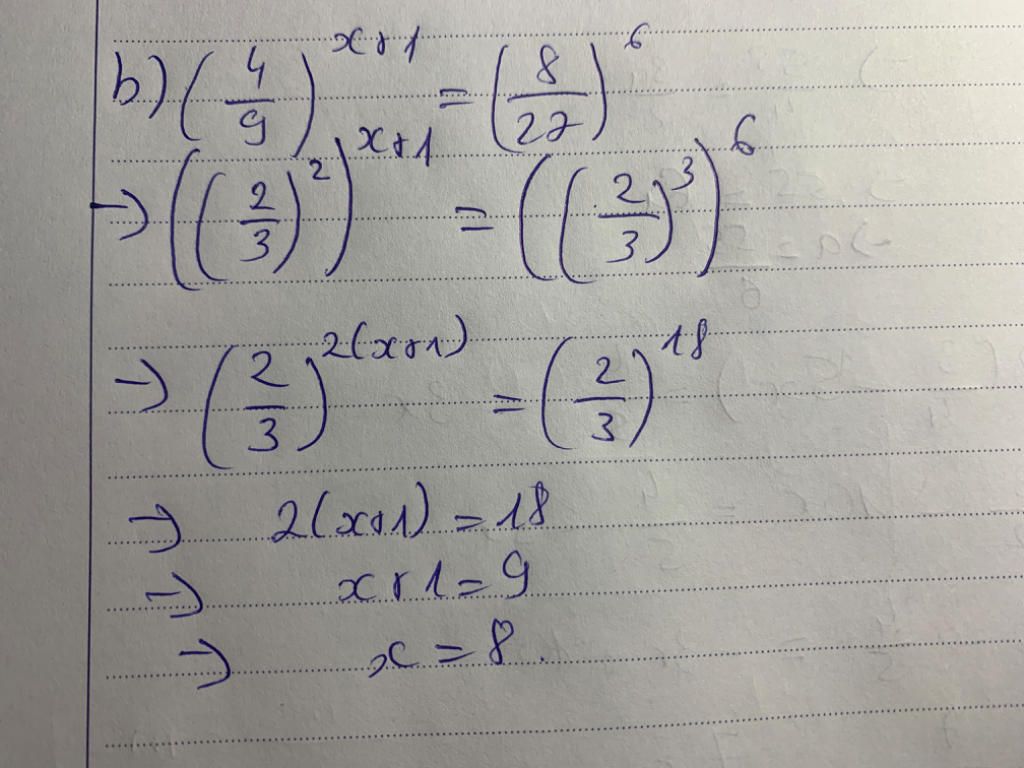 b) (4/9)^(x+1) = (8/27)^6
→ ((2/3)^2)^(x+1) = ((2/3)^3)^6
→ (2/3)^(2(x+1)) = (2/3)^18
→ 2(x+1) = 18
→ x+1 = 9
→ x = 8.